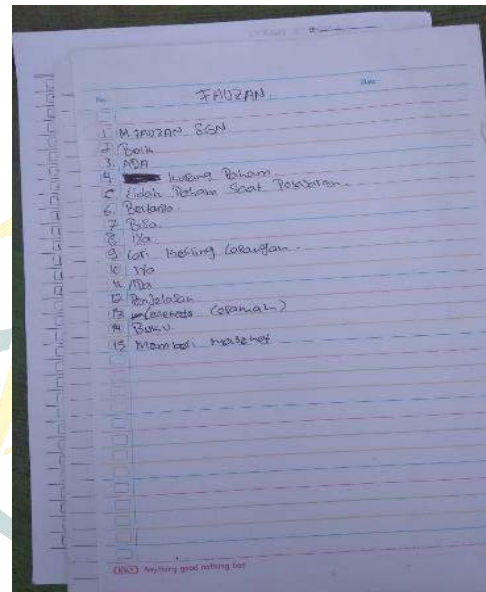 FAUZAN
No.
Date
1 M FAUZAN SGN
2 Baik
3. ADA
4. kurang Paham.
5 tidak Paham Saat Pelajaran.
6. Bertanya.
7 Bisa.
8 iya
9 Lari keliling Lapangan.
10 iya
11 ADa
12 Penjelasan
13 metode (ceramah)
14 Buku
15 Memberi nasehat
Anything good nothing bad